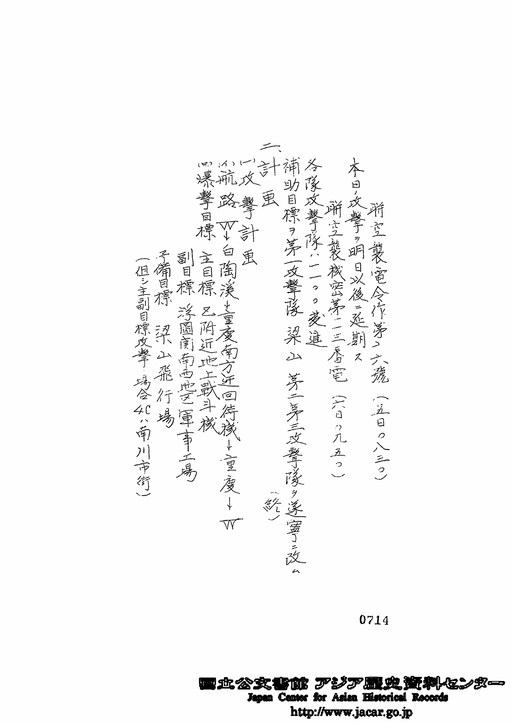 聯空襲電令作第二六號 (五日〇八三〇)
本日ノ攻撃ヲ明日以後ニ延期ス
聯空襲機密第一三番電 (六日〇九五〇)
各隊攻撃隊ハ一一〇〇發進
補助目標ヲ第一攻撃隊 梁山 第二第三攻撃隊ヲ遂寧ニ改ム
(終)
二、計画
攻撃計画
航路 W→白陶溪→重慶南方迂回待機→重慶→W
爆撃目標 主目標 附近地上戰斗機
副目標 浮圖関南西地区軍事工場
予備目標 梁山飛行場
(但シ主副目標攻撃ノ場合4Cハ南川市街)
0714
国立公文書館 アジア歴史資料センター
Japan Center for Asian Historical Records
http://www.jacar.go.jp